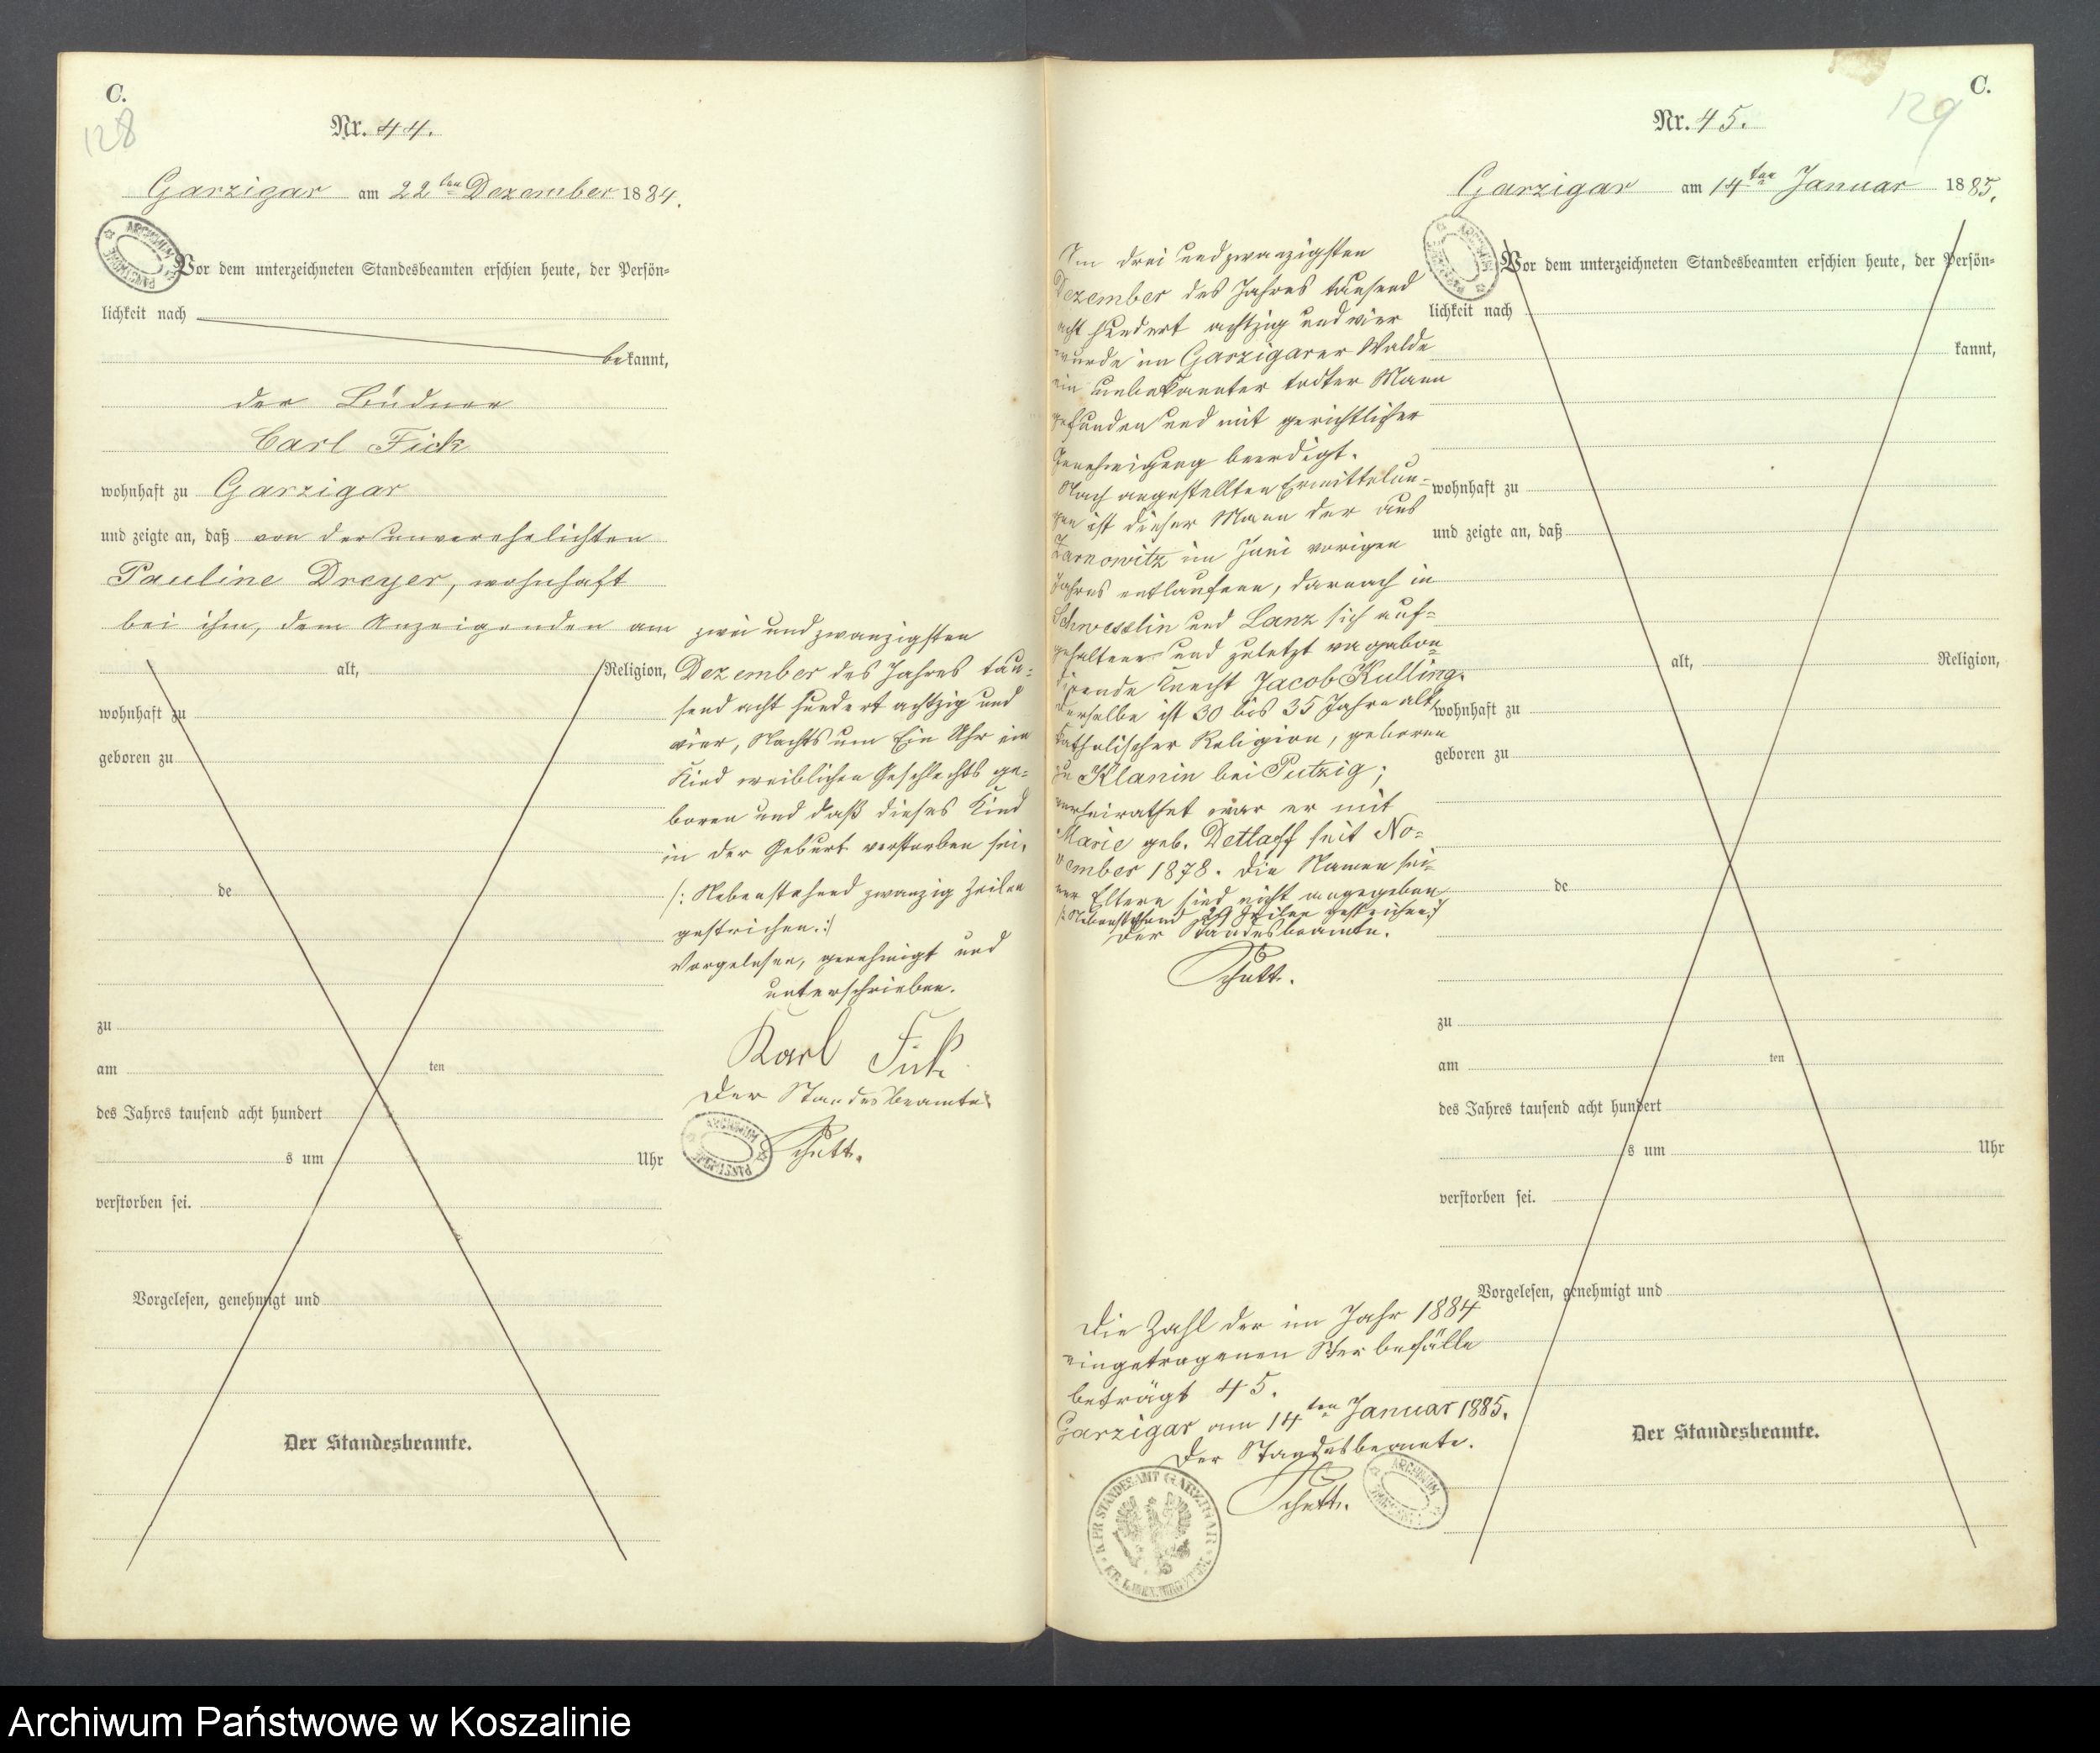 C.
128
Nr. 44.
Garzigar am 22ten Dezember 1884.
Vor dem unterzeichneten Standesbeamten erschien heute, der Persön-
lichkeit nach
bekannt,
der Büdner
Carl Fick
wohnhaft zu Garzigar
und zeigte an, daß von der unverehelichten
Pauline Dreyer, wohnhaft
bei ihm, dem Anzeigenden am zwei und zwanzigsten
Dezember des Jahres tau-
send acht hundert achtzig und
vier, Nachts um Ein Uhr ein
Kind weiblichen Geschlechts ge-
boren und daß dieses Kind
in der Geburt verstorben sei.
/: Nebenstehend zwanzig Zeilen
gestrichen. :/
Vorgelesen, genehmigt und
unterschrieben.
Karl Fick
Der Standesbeamte.
Schutt.
alt, Religion,
wohnhaft zu
geboren zu
de
zu
am ten
des Jahres tausend acht hundert
s um Uhr
verstorben sei.
Vorgelesen, genehmigt und
Der Standesbeamte.
ARCHIWUM PAŃSTWOWE
C.
129
Nr. 45.
Garzigar am 14ten Januar 1885.
Am drei und zwanzigsten
Dezember des Jahres tausend
acht hundert achtzig und vier
wurde im Garzigarer Walde
ein unbekannter todter Mann
gefunden und mit gerichtlicher
Genehmigung beerdigt.
Nach angestellten Ermittelun-
gen ist dieser Mann der aus
Zarnowitz im Juni vorigen
Jahres entlaufene, darnach in
Schwesslin und Lanz sich auf-
gehaltene und zuletzt vagabon-
dirende Knecht Jacob Kulling.
Derselbe ist 30 bis 35 Jahre alt,
katholischer Religion, geboren
zu Klanin bei Putzig;
verheirathet war er mit
Marie geb. Detlaff seit No-
vember 1878. Die Namen sei-
ner Eltern sind nicht angegeben
/: Nebenstehend Zeilen gestrichen :/
Der Standesbeamte.
Schutt.
Die Zahl der im Jahr 1884
eingetragenen Sterbefälle
beträgt 45.
Garzigar am 14ten Januar 1885.
Der Standesbeamte.
Schutt.
K. PR. STANDESAMT GARZIGAR
Vor dem unterzeichneten Standesbeamten erschien heute, der Persön-
lichkeit nach
kannt,
wohnhaft zu
und zeigte an, daß
alt, Religion,
wohnhaft zu
geboren zu
de
zu
am ten
des Jahres tausend acht hundert
s um Uhr
verstorben sei.
Vorgelesen, genehmigt und
Der Standesbeamte.
Archiwum Państwowe w Koszalinie